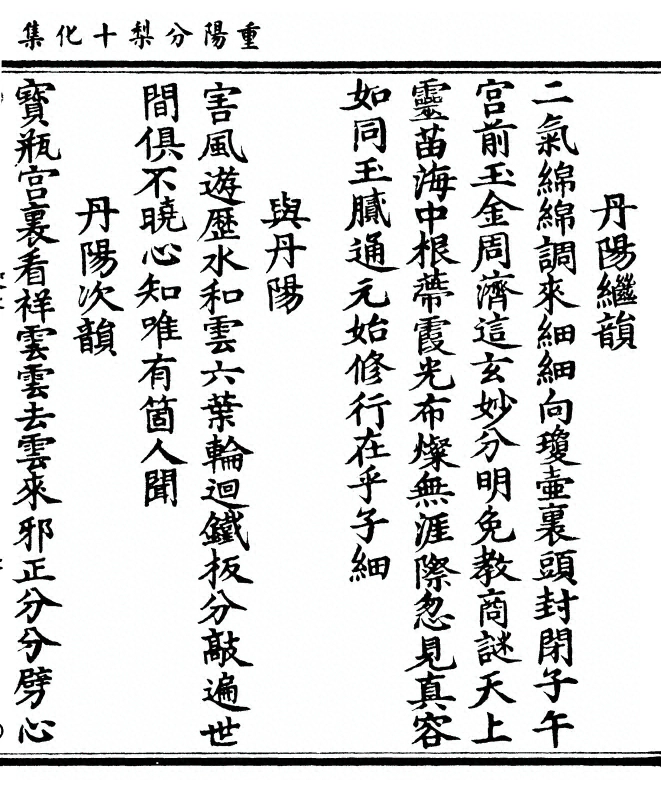 重陽分梨十化集
丹陽繼韻
二氣綿綿調來細細向瓊壺裏頭封閉子午
宫前玉金周濟這玄妙分明免教商謎天上
靈苗海中根蔕霞光布燦無涯際忽見真容
如同玉膩通元始修行在乎子細
與丹陽
害風遊歷水和雲六葉輪迴鐵板分敲遍世
間俱不曉心知唯有箇人聞
丹陽次韻
寶瓶宫裏看祥雲雲去雲來邪正分分劈心